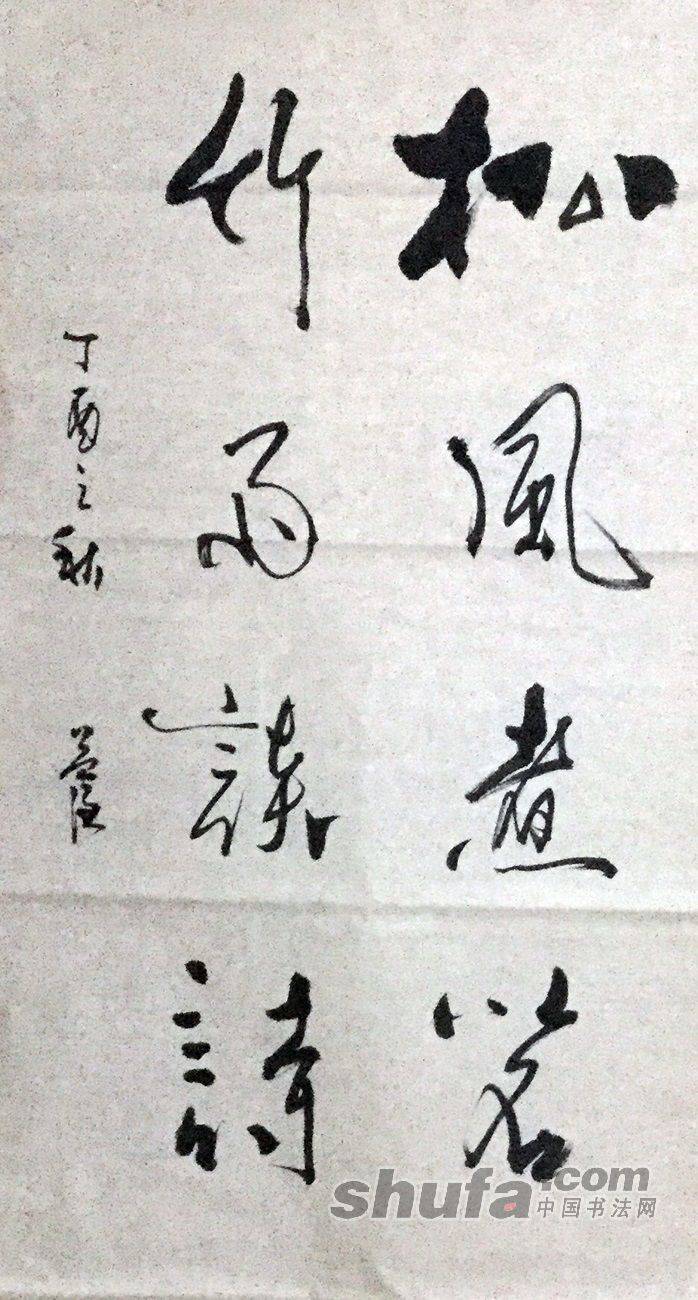 松風煮茗
竹雨談詩
丁酉之秋
shufa.com
中国书法网